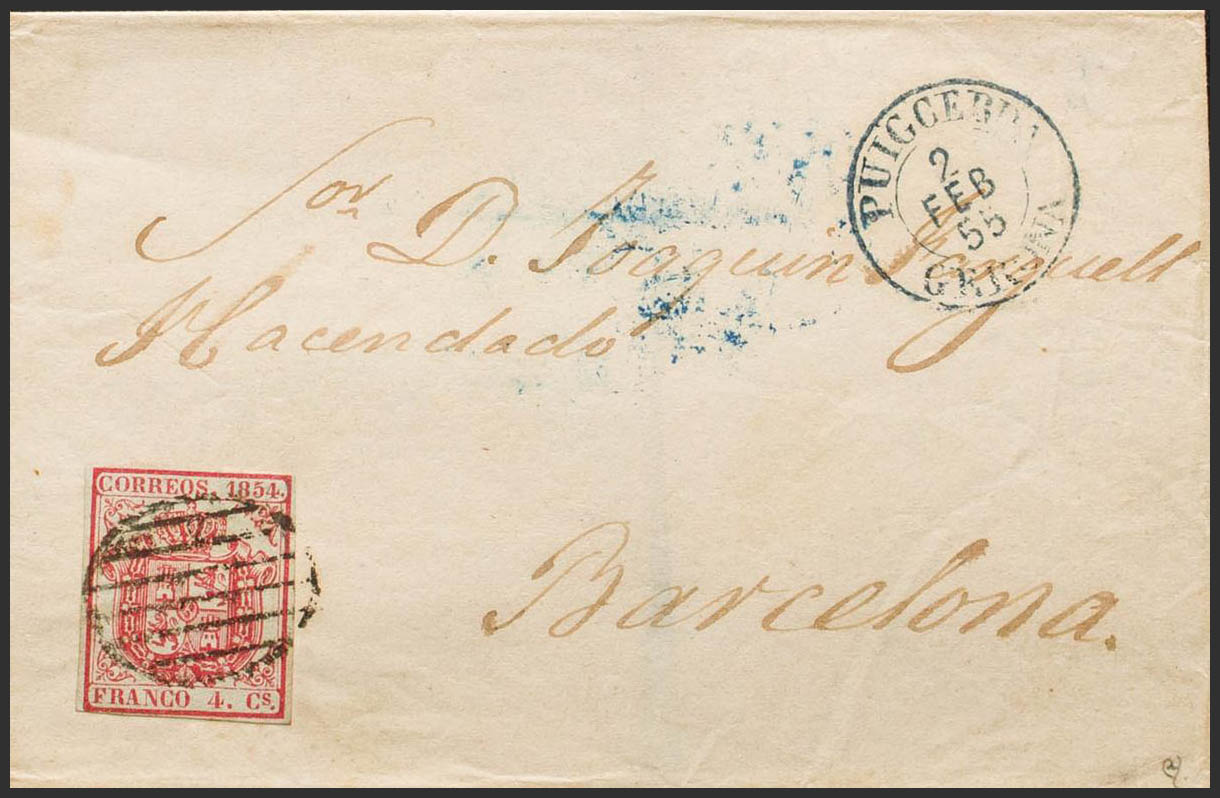 PUIGCERDA
2
FEB
55
GERONA
Sor. D. Joaquin
Hacendado
Barcelona.
CORREOS 1854.
FRANCO 4. Cs.